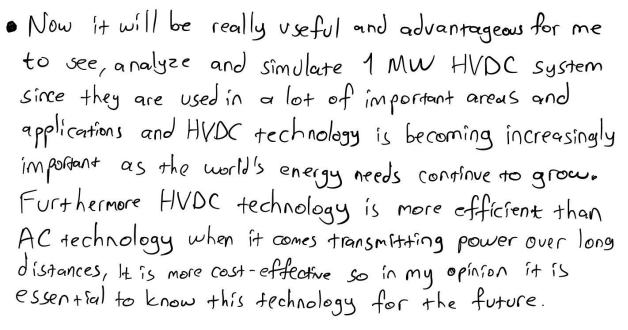 • Now it will be really useful and advantageous for me
to see, analyze and simulate 1 MW HVDC system
since they are used in a lot of important areas and
applications and HVDC technology is becoming increasingly
important as the world's energy needs continue to grow.
Furthermore HVDC technology is more efficient than
AC technology when it comes transmitting power over long
distances, It is more cost-effective so in my opinion it is
essential to know this technology for the future.